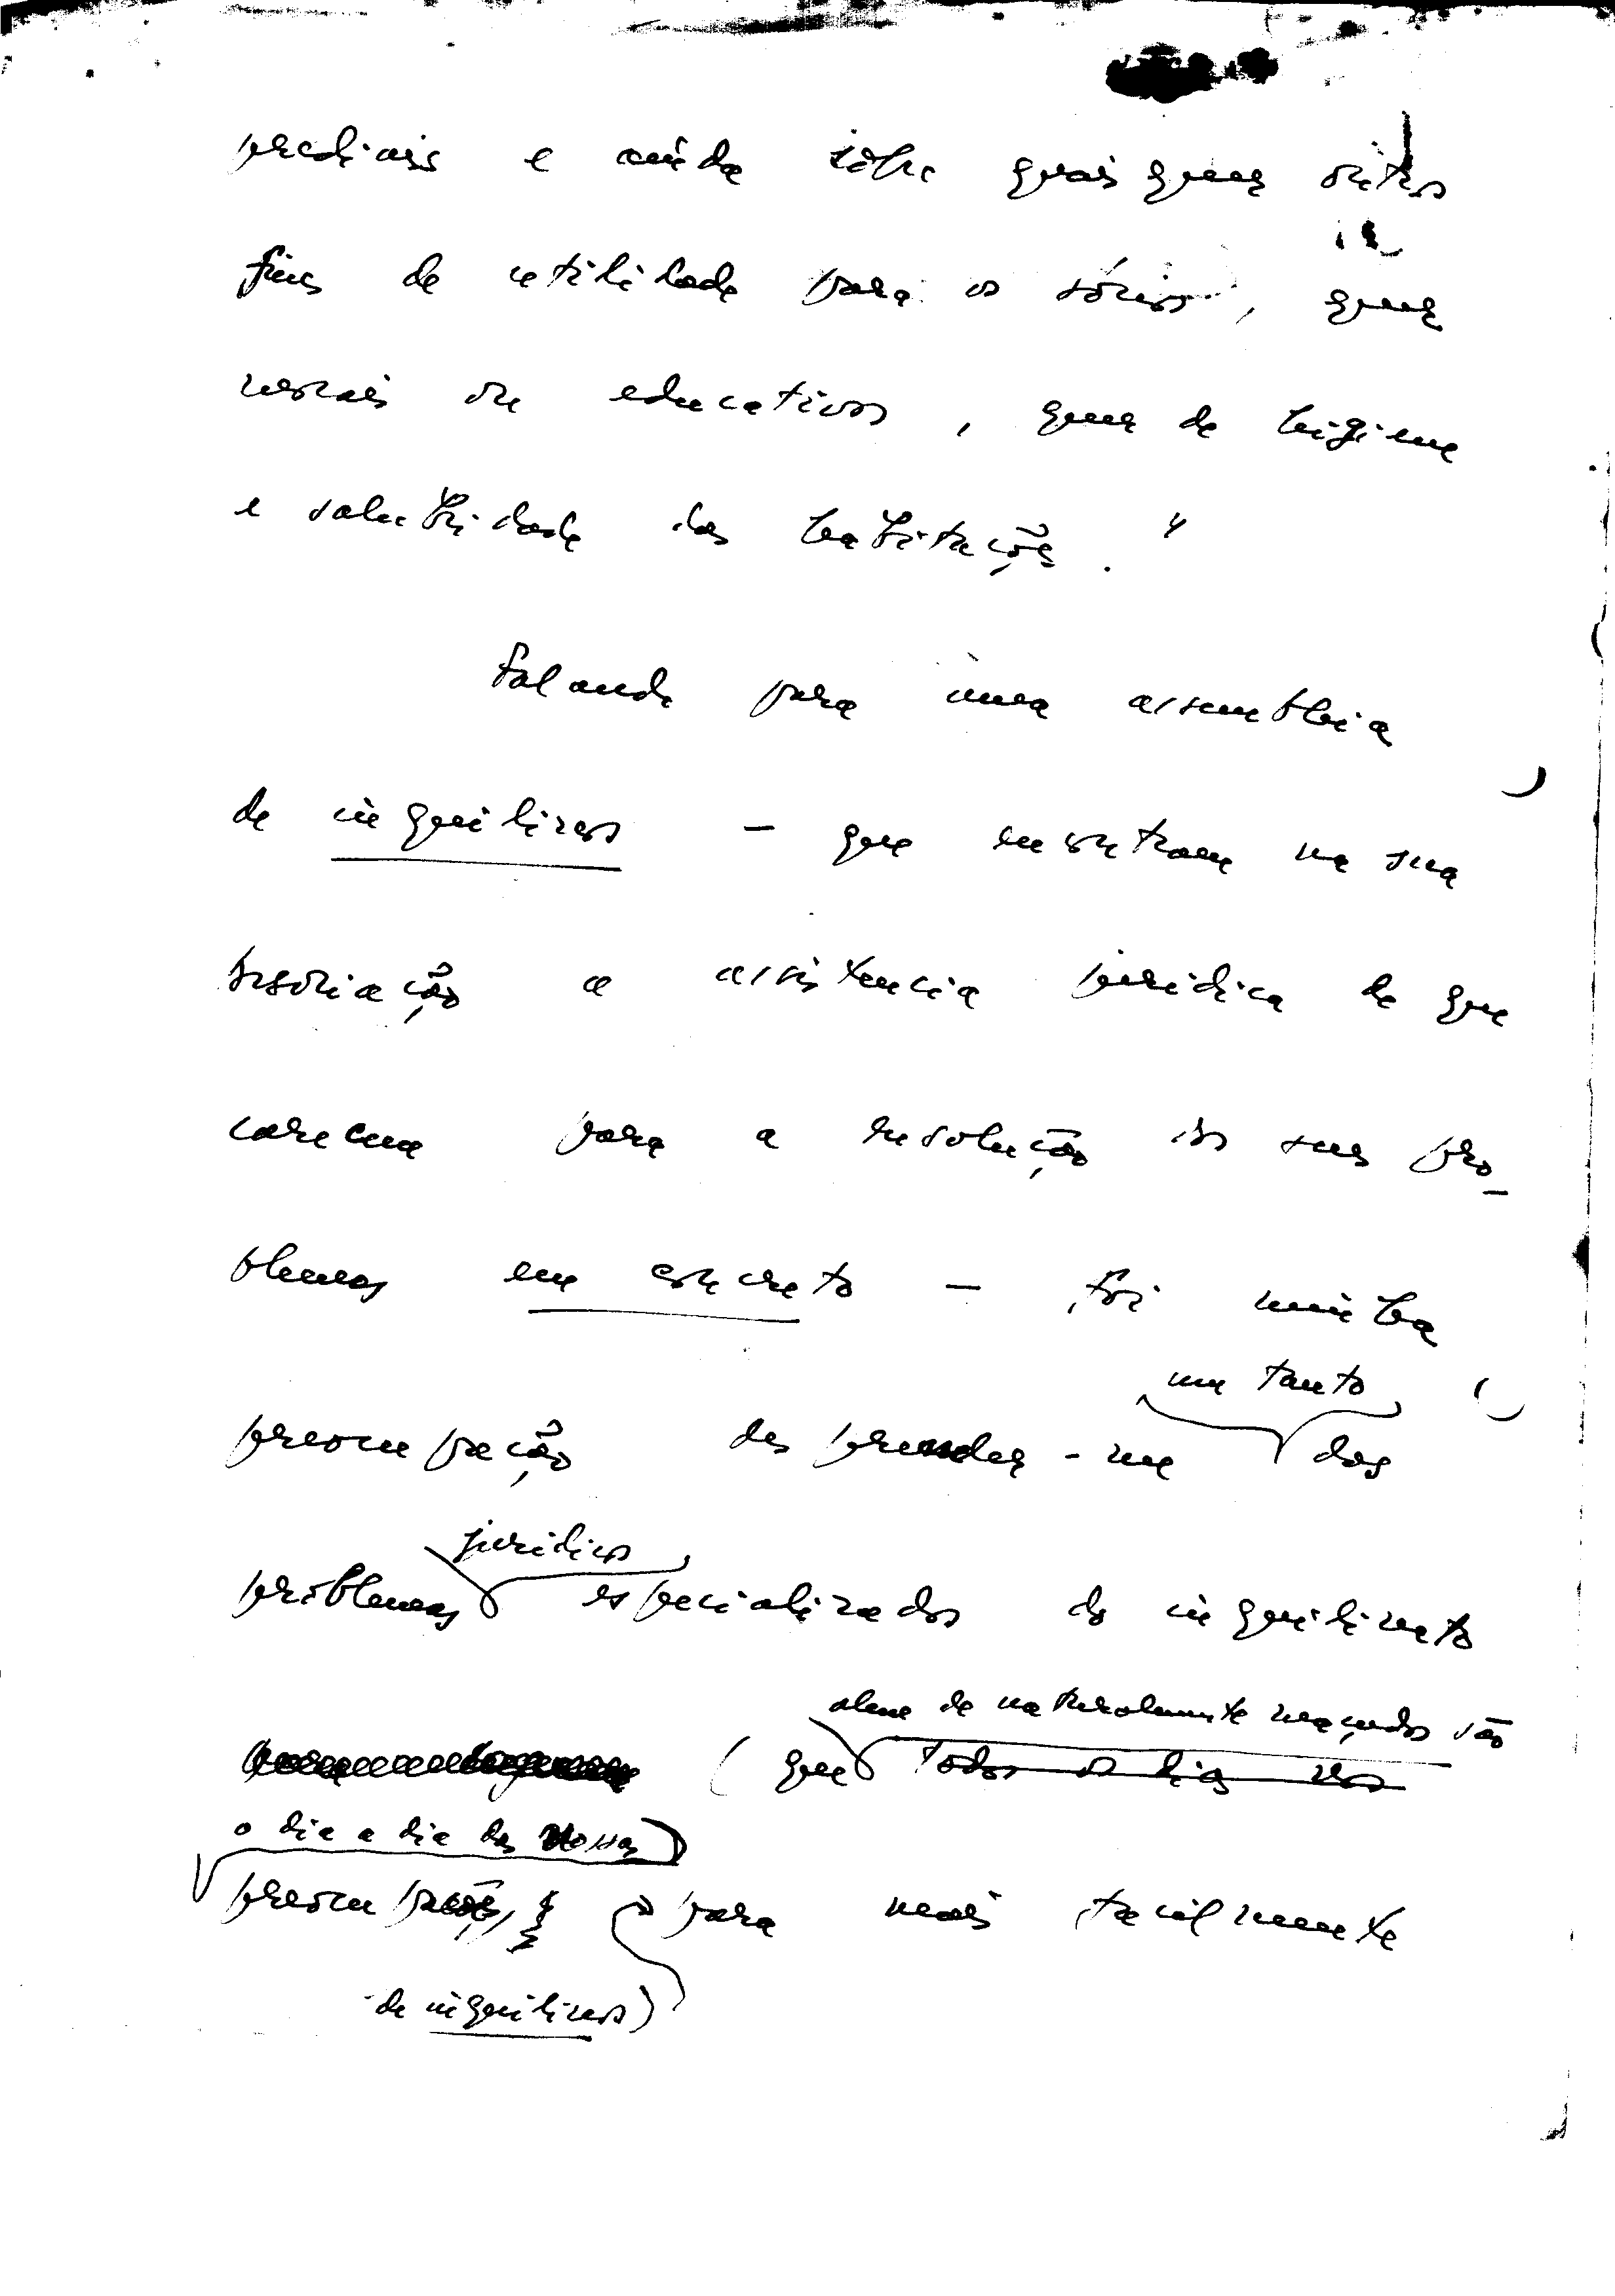 prediais e ainda sôbre quaisquer outros
fins de utilidade para os sócios, quer
morais ou educativos, quer de higiene
e salubridade das habitações."
Falando para uma assembleia
de inquilinos — que encontram na sua
Associação a assistencia juridica de que
carecem para a resolução dos seus pro-
blemas em concreto — foi minha
um tanto
preocupação desprender-me dos
juridicos
problemas especializados do inquilinato
alem de naturalmente maçudos são
(que todos os dias nos
o dia a dia das nossas)
preocupações, para mais facilmente
de inquilinos)